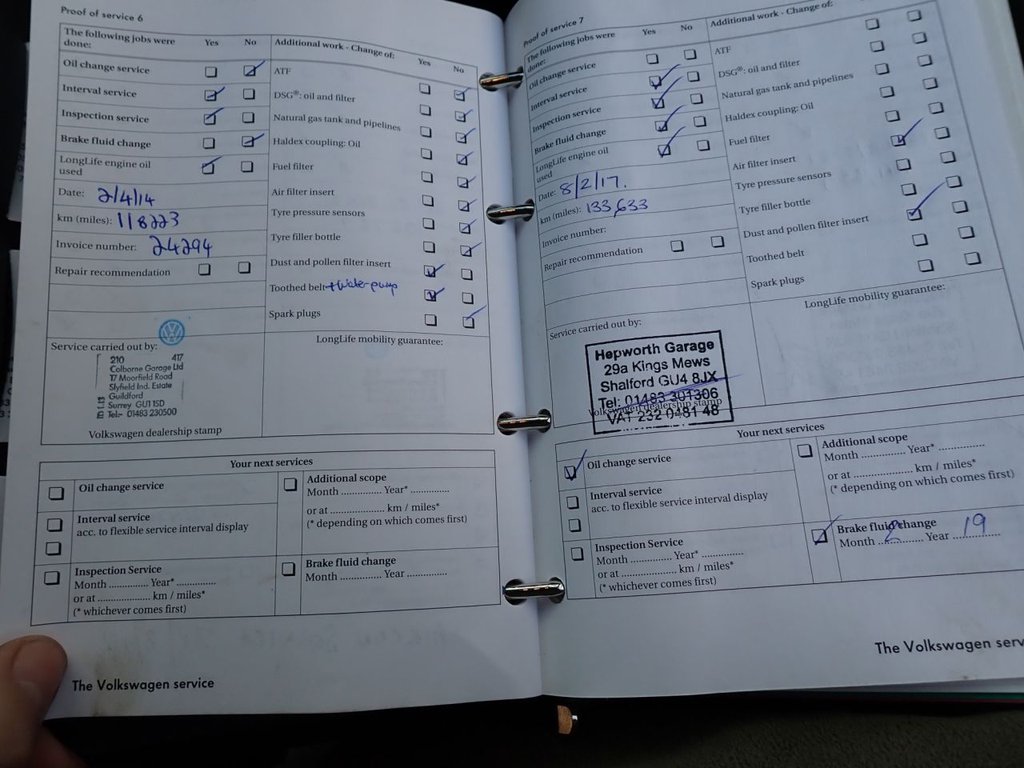 Proof of service 6
The following jobs were done: Yes No
Oil change service
Interval service
Inspection service
Brake fluid change
LongLife engine oil used
Date: 2/4/14
km (miles): 118223
Invoice number: 24294
Repair recommendation
Additional work - Change of: Yes No
ATF
DSG®: oil and filter
Natural gas tank and pipelines
Haldex coupling: Oil
Fuel filter
Air filter insert
Tyre pressure sensors
Tyre filler bottle
Dust and pollen filter insert
Toothed belt + Water pump
Spark plugs
Service carried out by:
210 417
Colborne Garage Ltd
17 Moorfield Road
Slyfield Ind. Estate
Guildford
Surrey GU1 1SD
Tel:- 01483 230500
Volkswagen dealership stamp
LongLife mobility guarantee:
Your next services
Oil change service
Interval service
acc. to flexible service interval display
Inspection Service
Month ............... Year* ...............
or at ............... km / miles*
(* whichever comes first)
Additional scope
Month ............... Year* ...............
or at ............... km / miles*
(* depending on which comes first)
Brake fluid change
Month ............... Year ...............
The Volkswagen service
Proof of service 7
The following jobs were done: Yes No
Oil change service
Interval service
Inspection service
Brake fluid change
LongLife engine oil used
Date: 8/2/17.
km (miles): 133,633
Invoice number:
Repair recommendation
Additional work - Change of:
ATF
DSG®: oil and filter
Natural gas tank and pipelines
Haldex coupling: Oil
Fuel filter
Air filter insert
Tyre pressure sensors
Tyre filler bottle
Dust and pollen filter insert
Toothed belt
Spark plugs
Service carried out by:
Hepworth Garage
29a Kings Mews
Shalford GU4 8JX
Tel: 01483 301306
VAT 232 0481 48
Volkswagen dealership stamp
LongLife mobility guarantee:
Your next services
Oil change service
Interval service
acc. to flexible service interval display
Inspection Service
Month ............... Year* ...............
or at ............... km / miles*
(* whichever comes first)
Additional scope
Month ............... Year* ...............
or at ............... km / miles*
(* depending on which comes first)
Brake fluid change
Month 2 Year 19
The Volkswagen serv